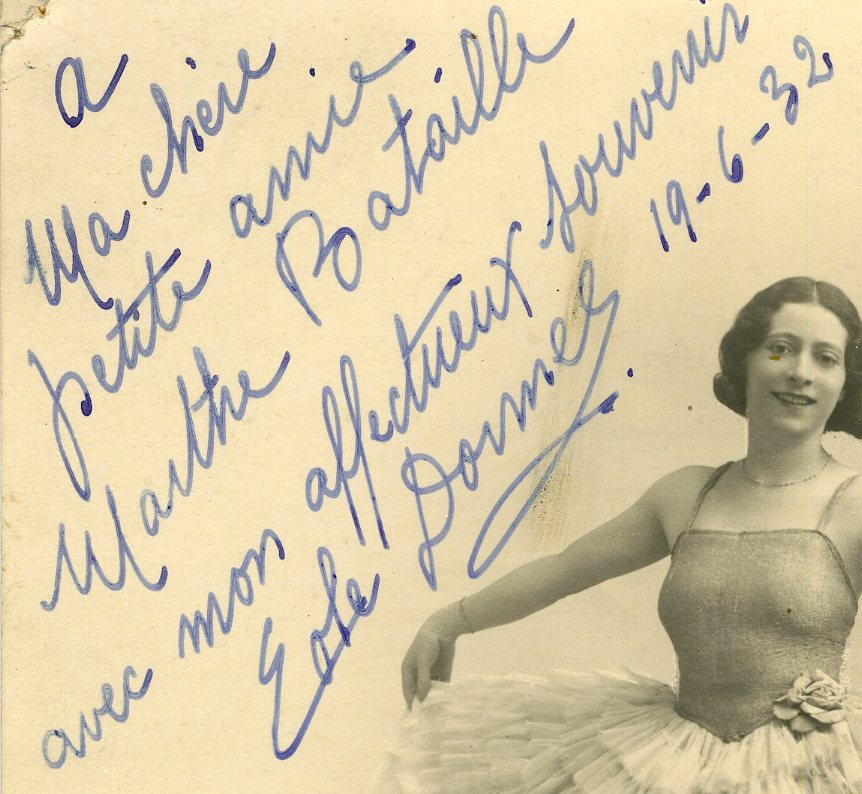 a
Ma chère
petite amie
Marthe Bataille
avec mon affectueux souvenir
Eole Dormel
19-6-32